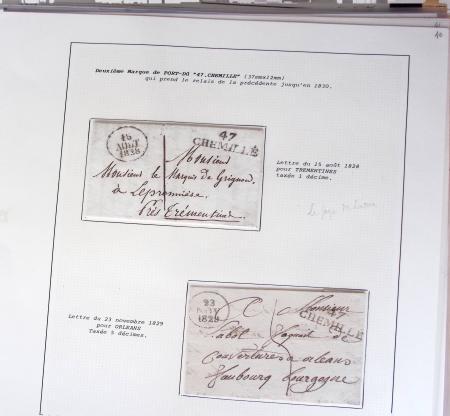 Deuxième Marque de PORT-DÛ "47.CHEMILLE" (37mmx12mm)
qui prend le relais de la précédente jusqu'en 1830.
15
AOUT
1828
47
CHEMILLÉ
Monsieur
Monsieur le Marquis de Grignon
à Lepronnière.
Près Trémentine
Lettre du 15 août 1828
pour TREMENTINES
taxée 1 décime.
Lettre du 23 novembre 1829
pour ORLEANS
Taxée 5 décimes.
23
NOV
1829
47
CHEMILLÉ
Monsieur
couvertures à orleans
faubourg Bourgogne
10